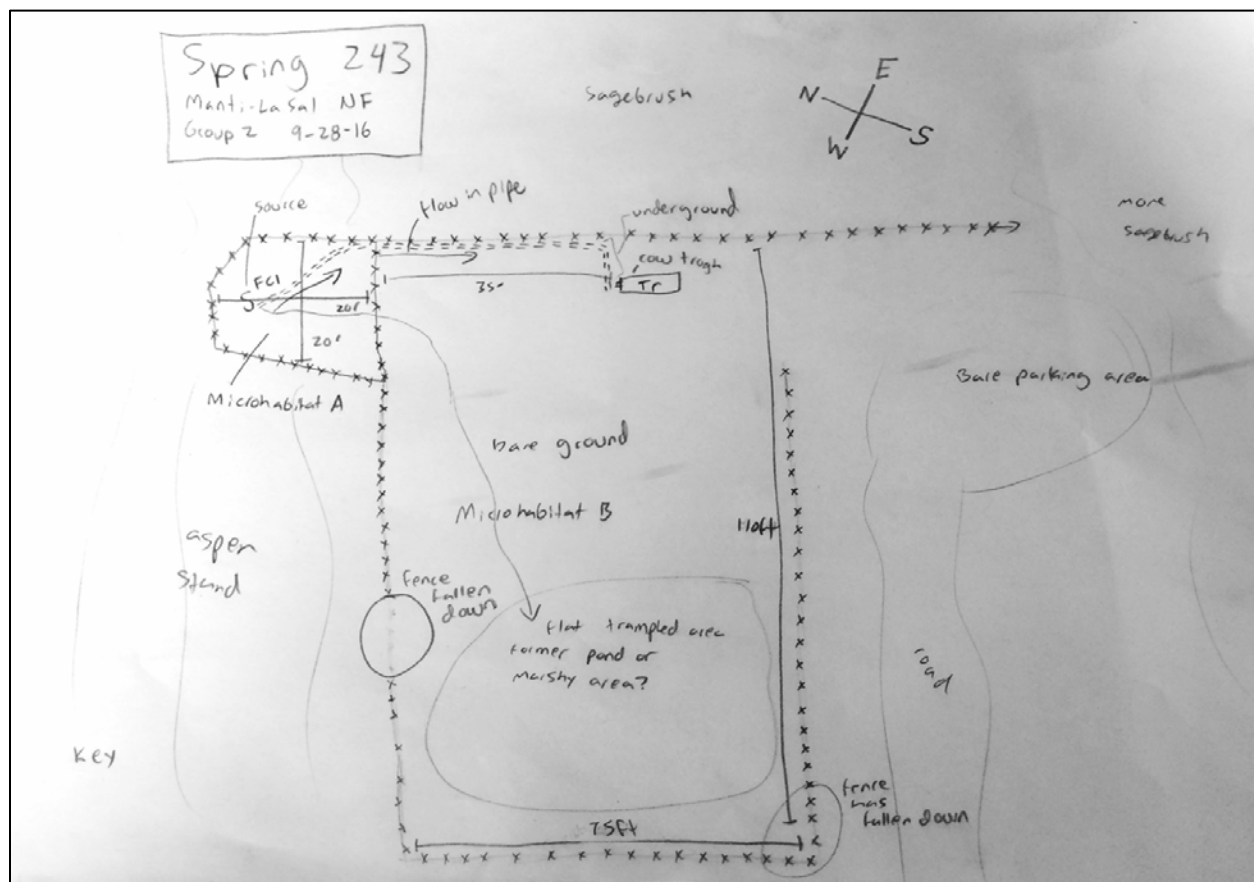 Spring 243
Manti-LaSal NF
Group 2 9-28-16
Sagebrush
N
E
W
S
more
sagebrush
source
flow in pipe
underground
cow trogh
Tr
FCI
S
20'
20'
35'
Microhabitat A
Bare parking area
bare ground
Microhabitat B
110ft
aspen
stand
fence
fallen
down
flat trampled area
former pond or
marshy area?
road
Key
fence
has
fallen down
75ft